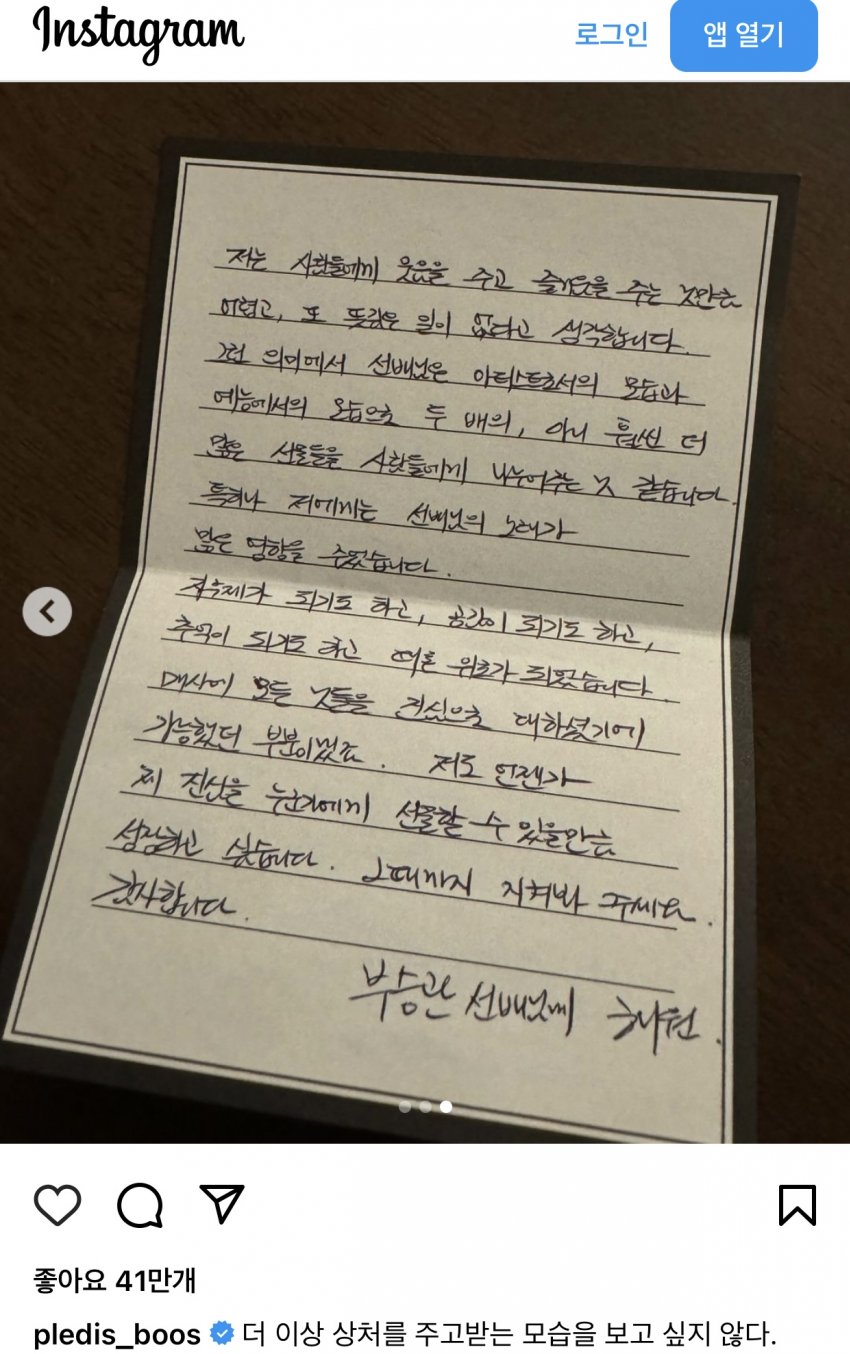 Instagram
로그인
앱 열기
저는 사람들에게 웃음을 주고 즐거움을 주는 것만큼
어렵고, 또 뜻깊은 일이 없다고 생각합니다.
그런 의미에서 선배님은 아티스트로서의 모습과
예능에서의 모습으로 두 배의, 아니 훨씬 더
많은 선물들을 사람들에게 나누어주는 것 같습니다.
특히나 저에게는 선배님의 노래가
많은 영향을 주었습니다.
자극제가 되기도 하고, 공감이 되기도 하고,
추억이 되기도 하고 때론 위로가 되었습니다
매사에 모든 것들을 진심으로 대하셨기에
가능했던 부분이겠죠. 저도 언젠가
제 진심을 누군가에게 선물할 수 있을만큼
성장하고 싶습니다. 그때까지 지켜봐 주세요.
감사합니다.
부승관 선배님께
좋아요 41만개
pledis_boos 더 이상 상처를 주고받는 모습을 보고 싶지 않다.